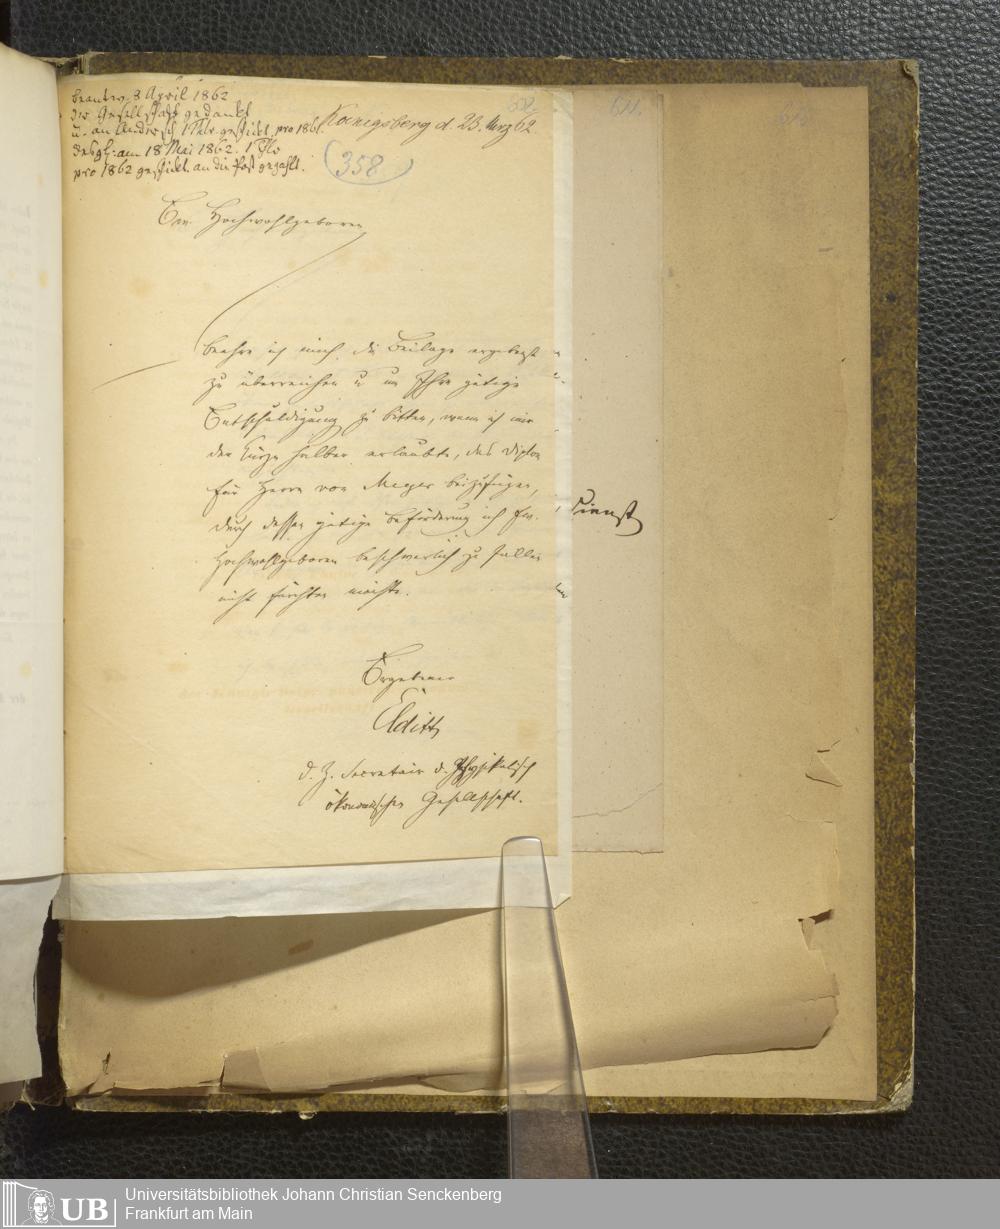 beantw. 8 April 1862
der Gesellschaft gedankt
u. an Andersch 1 Thlr. geschickt pro 1861
desgl. am 18 Mai 1862. 1 Thlr
pro 1862 geschickt. an die Post gezahlt.
Koenigsberg d. 23. März 62.
358
Ew. Hochwohlgeboren
beehre ich mich die Beilage ergebenst
zu überreichen u um Ihre gütige
Entschuldigung zu bitten, wenn ich mir
der Kürze halber erlaubte, das Diplom
für Herrn von Meyer beizufügen,
durch dessen gütige Beförderung ich Ew.
Hochwohlgeboren beschwerlich zu fallen
nicht fürchten möchte.
Ergebener
Elditt
d. Z. Secretair d. Physikalisch
ökonomischen Gesellschaft.
611.
Dienst
UB
Universitätsbibliothek Johann Christian Senckenberg
Frankfurt am Main